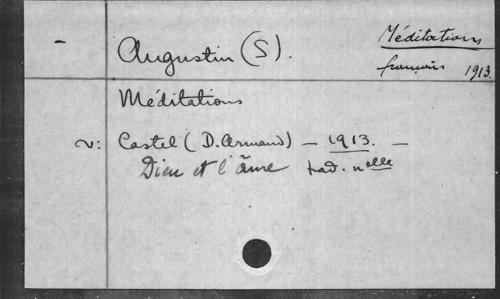 Méditations
Augustin (S).
français 1913.
Méditations
v: Castel (D. Armand) — 1913. —
Dieu et l'âme trad. nelle